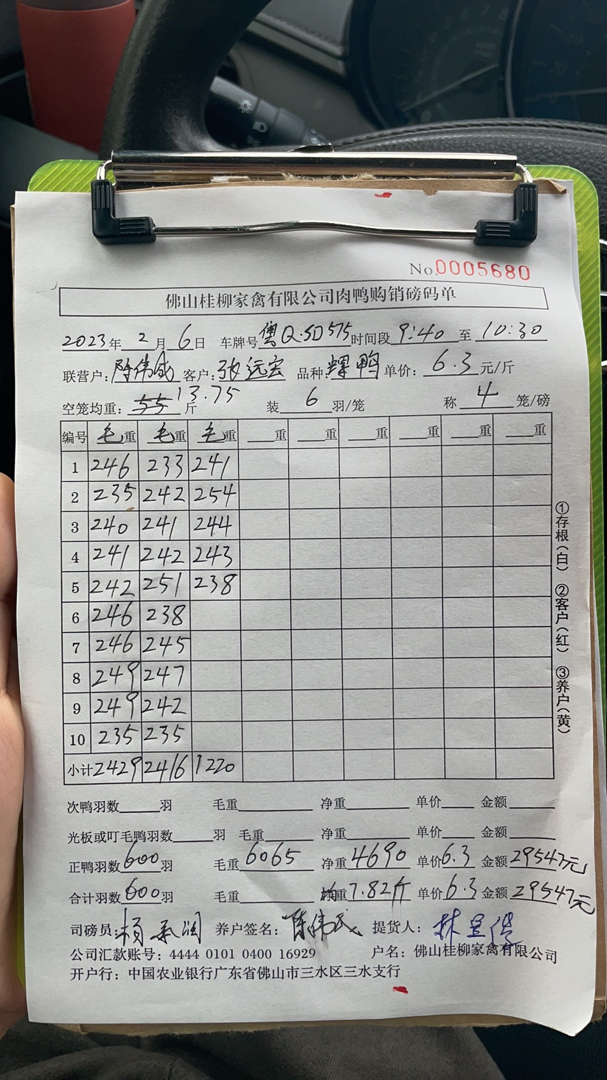 No.0005680
佛山桂柳家禽有限公司肉鸭购销磅码单
2023年 2月 6日 车牌号 粤Q.5D575 时间段 9:40 至 10:30
联营户: 陈伟成 客户: 张远宏 品种: 鸭 单价: 6.3 元/斤
空笼均重: 55 13.75 斤 装 6 羽/笼 称 4 笼/磅
编号 毛重 毛重 毛重 重 重 重 重 重 重
1 246 233 241
2 235 242 254
3 240 241 244
4 241 242 243
5 242 251 238
6 246 238
7 246 245
8 249 247
9 249 242
10 235 235
小计 2429 2416 1220
次鸭羽数 羽 毛重 净重 单价 金额
光板或叮毛鸭羽数 羽 毛重 净重 单价 金额
正鸭羽数 600 羽 毛重 6065 净重 4690 单价 6.3 金额 29547元
合计羽数 600 羽 毛重 均重 7.82斤 单价 6.3 金额 29547元
司磅员: 杨 养户签名: 陈伟成 提货人: 林
公司汇款账号: 4444 0101 0400 16929 户名: 佛山桂柳家禽有限公司
开户行: 中国农业银行广东省佛山市三水区三水支行
①存根(白) ②客户(红) ③养户(黄)